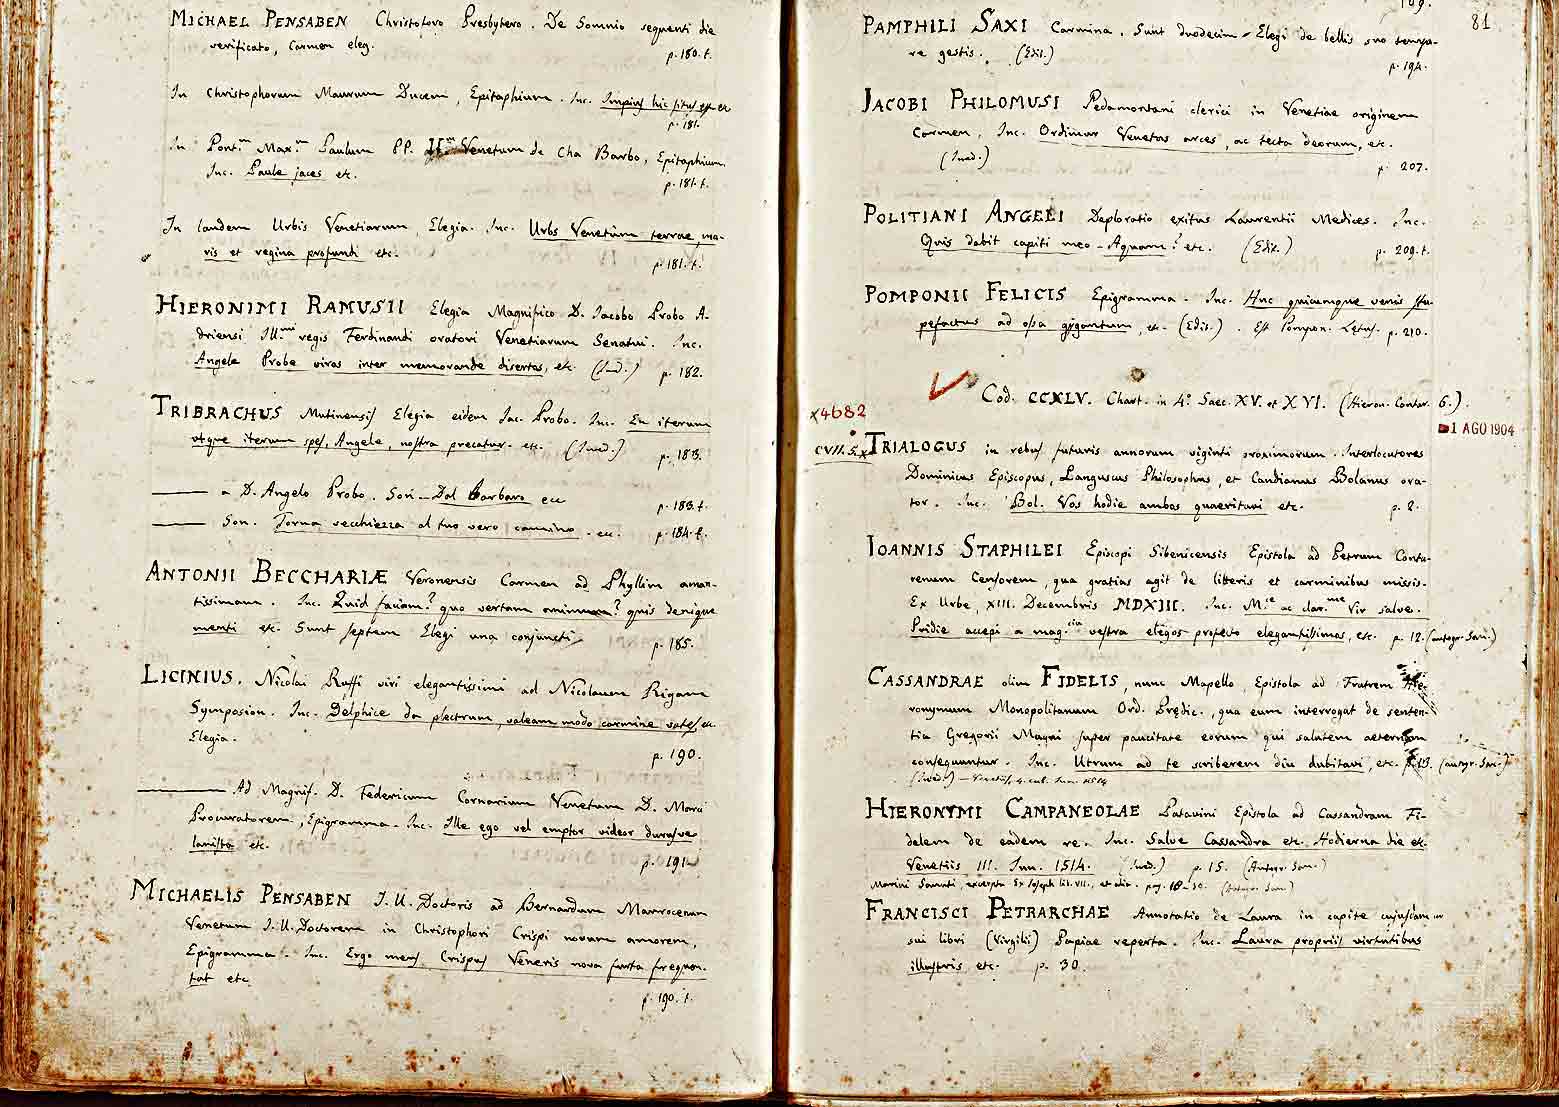 MICHAEL PENSABEN Christoforo Presbytero. De Somnio sequenti die
verificato, Carmen eleg.
p. 180. t.
In Christophorum Maurum Ducem, Epitaphium. Inc. Impius hic situs est
p. 181.
In Pont.m Max.m Paulum PP. II.m Venetum de Cha Barbo, Epitaphium.
Inc. Paule jaces etc.
p. 181. t.
In laudem Urbis Venetiarum, Elegia. Inc. Urbs Venetûm terrae, ma-
ris et regina profundi etc.
p. 181. t.
HIERONIMI RAMUSII Elegia Magnifico D. Jacobo Probo A-
driensi Ill.mi regis Ferdinandi oratori Venetiarum Senatui. Inc.
Angele Probe viros inter memorande disertos, etc. (Ined.) p. 182.
TRIBRACHUS Mutinensis Elegia eidem Jac. Probo. Inc. En iterum
atque iterum spes, Angele, nostra precatur. etc. (Ined.) p. 183.
a D. Angelo Probo. Son. Dal Barbaro ecc p. 183. t.
Son. Torna vecchiezza al tuo vero camino. ecc. p. 184. t.
ANTONII BECCHARIÆ Veronensis Carmen ad Phyllim aman-
tissimam. Inc. Quid faciam? quo vertam animum? quis denique
menti etc. Sunt septem Elegi una conjuncti
p. 185.
LICINIUS. Nicolai Ruffi viri elegantissimi ad Nicolaum Rigam
Symposion. Inc. Delphice da plectrum, valeam modo carmine vates, ec
Elegia.
p. 190.
Ad Magnif. D. Federicum Cornarium Venetum D. Marci
Procuratorem, Epigramma. Inc. Ille ego vel emptor videor durusve
lanista etc.
p. 191
MICHAELIS PENSABEN J. U. Doctoris ad Bernardum Maurocenum
Venetum J. U. Doctorem in Christophori Crispi novum amorem,
Epigramma. Inc. Ergo meus Crispus Veneris nova furta frequen-
tat etc.
p. 190. t.
81
PAMPHILI SAXI Carmina. Sunt duodecim Elegi de bellis suo tempo-
re gestis. (Edi.)
p. 194.
JACOBI PHILOMUSI Pedamontani clerici in Venetiae originem
Carmen, Inc. Ordimur Venetas arces, ac tecta deorum, etc.
(Ined.)
p. 207.
POLITIANI ANGELI Deploratio exitus Laurentii Medices. Inc.
Quis dabit capiti meo - Aquam? etc. (Edit.) p. 209. t.
POMPONII FELICIS Epigramma. Inc. Huc quicumque venis stu-
pefactus ad ossa gygantum, etc. (Edit.). Est Pompon. Lętus. p. 210.
Cod. CCXLV. Chart. in 4º Saec. XV. et XVI. (Hieron. Contar. 6.).
x4682
1 AGO 1904
CVII. 5.x
TRIALOGUS in rebus futuris annorum viginti proximorum. Interlocutores
Dominicus Episcopus, Languscus Philosophus, et Candianus Bolanus ora-
tor. Inc. Bol. Vos hodie ambos quaeritavi etc. p. 2.
IOANNIS STAPHILEI Episcopi Sibenicensis Epistola ad Petrum Conta-
renum Censorem, qua gratias agit de literis et carminibus missis.
Ex Urbe, XIII. Decembris MDXIII. Inc. M.ce ac clar.me Vir salve.
Pridie accepi a mag.cia vestra elegos profecto elegantissimos, etc. p. 12. (autogr. San.)
CASSANDRAE olim FIDELIS, nunc Mapello, Epistola ad Fratrem Hie-
ronymum Monopolitanum Ord. Prędic., qua eum interrogat de senten-
tia Gregorii Magni super paucitate eorum qui salutem aeternam
consequuntur. Inc. Utrum ad te scriberem diu dubitavi, etc. p. 13. (autogr. San.)
(Ined.) — Venetiis, 4. cal. Jun. 1514
HIERONYMI CAMPANEOLAE Patavini Epistola ad Cassandram Fi-
delem de eadem re. Inc. Salve Cassandra etc. Hodierna die etc.
Venetiis III. Jun. 1514. (Ined.) p. 15. (Autogr. San.)
Marini Sanuti, excerpta Ex Joseph lib. VII., et alia. pag. 18-30. (Autogr. San.)
FRANCISCI PETRARCHAE Annotatio de Laura in capite cujusdam
sui libri (Virgilii) Papiae reperta. Inc. Laura propriis virtutibus
illustris etc. p. 30.